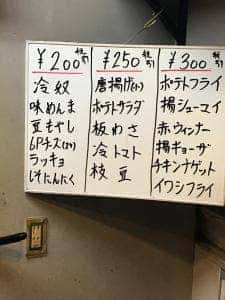 ¥200 税別
冷奴
味めんま
豆もやし
6Pチーズ(2ヶ)
ラッキョ
しそにんにく
¥250 税別
唐揚げ(小)
ポテトサラダ
板わさ
冷トマト
枝豆
¥300 税別
ポテトフライ
揚シューマイ
赤ウィンナー
揚ギョーザ
チキンナゲット
イワシフライ